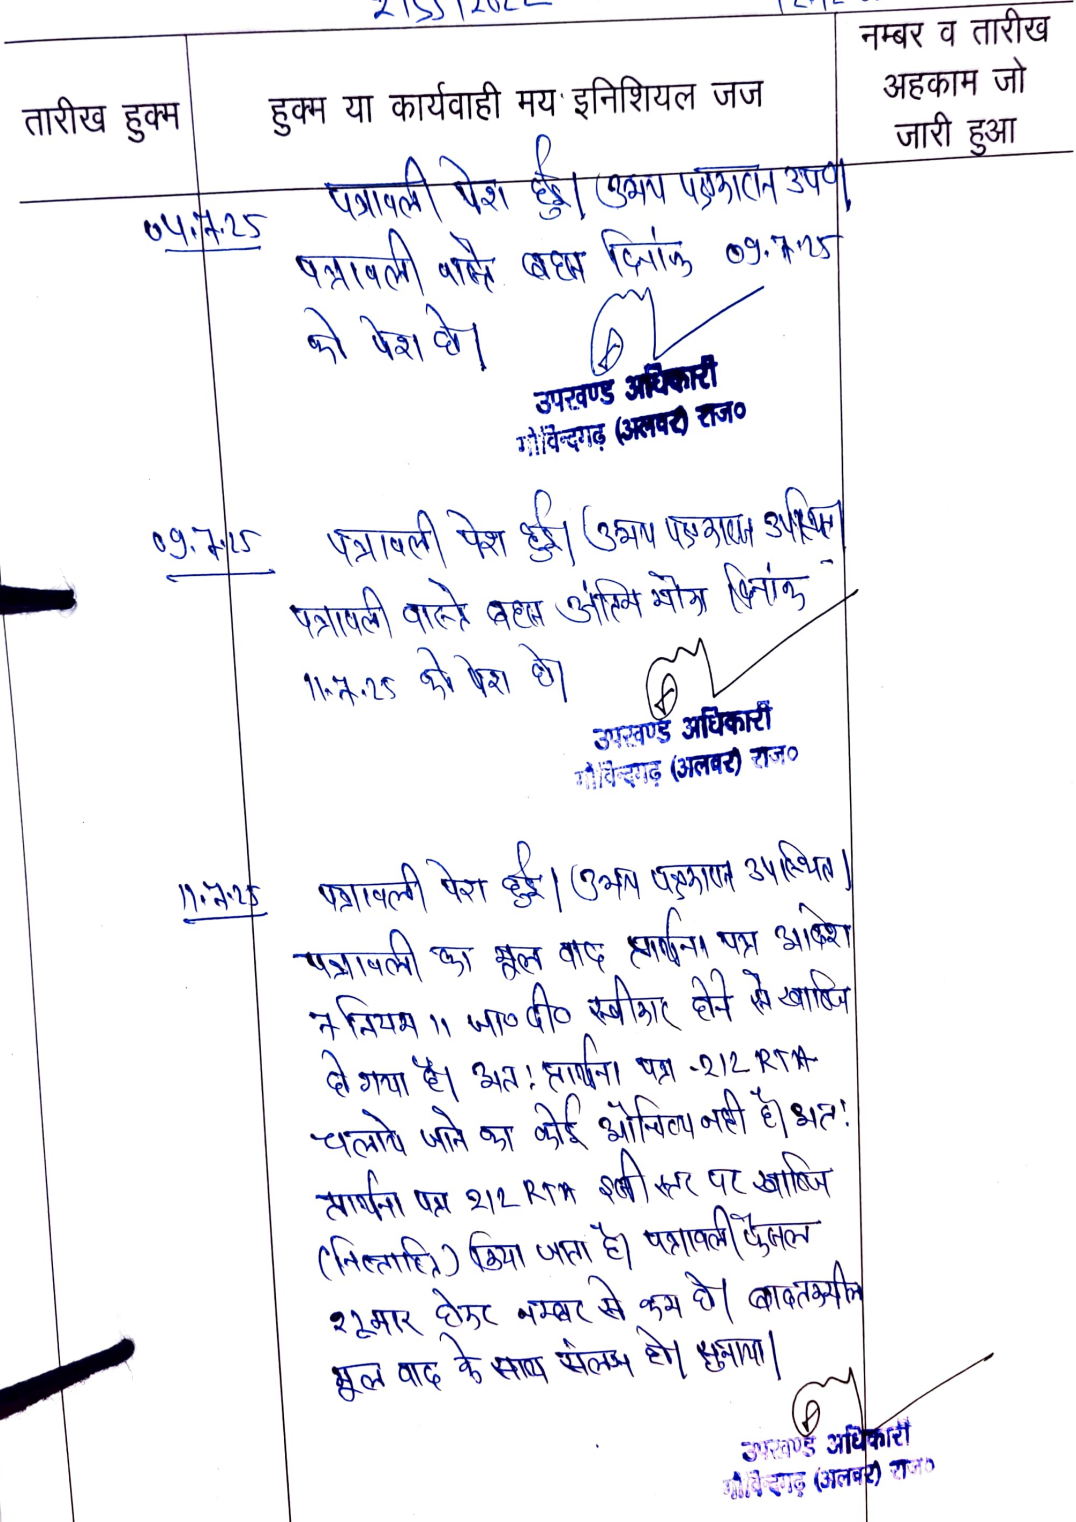 2155/2022
नम्बर व तारीख
अहकाम जो
जारी हुआ
तारीख हुक्म
हुक्म या कार्यवाही मय इनिशियल जज
04.7.25
पत्रावली पेश हुई। उभय पक्षकारान उप०।
पत्रावली वास्ते बहस दिनांक 09.7.25
को पेश हो।
उपखण्ड अधिकारी
गोविन्दगढ़ (अलवर) राज०
09.7.25
पत्रावली पेश हुई। उभय पक्षकारान उपस्थित।
पत्रावली वास्ते बहस अंतिम मौका दिनांक
11.7.25 को पेश हो।
उपखण्ड अधिकारी
गोविन्दगढ़ (अलवर) राज०
11.7.25
पत्रावली पेश हुई। उभय पक्षकारान उपस्थित।
पत्रावली का मूल वाद प्रार्थना पत्र आदेश
7 नियम 11 जा० दी० स्वीकार होने से खारिज
हो गया है। अत: प्रार्थना पत्र 212 RTA
चलाये जाने का कोई औचित्य नही है। अत:
प्रार्थना पत्र 212 RTA इसी स्तर पर खारिज
(निस्तारित) किया जाता है। पत्रावली फैसल
शुमार होकर नम्बर से कम हो। बादतकमील
मूल वाद के साथ संलग्न हो। सुनाया।
उपखण्ड अधिकारी
गोविन्दगढ़ (अलवर) राज०